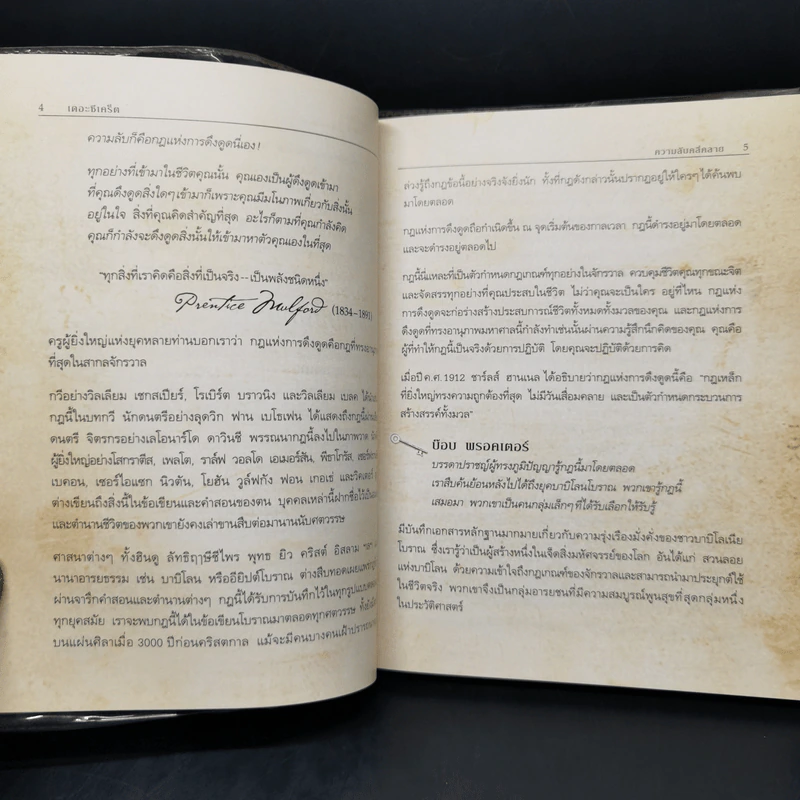 4 เดอะซีเคร็ต
ความลับก็คือกฎแห่งการดึงดูดนี่เอง!
ทุกอย่างที่เข้ามาในชีวิตคุณนั้น คุณเองเป็นผู้ดึงดูดเข้ามา
ที่คุณดึงดูดสิ่งใดๆ เข้ามาก็เพราะคุณมีมโนภาพเกี่ยวกับสิ่งนั้น
อยู่ในใจ สิ่งที่คุณคิดสำคัญที่สุด อะไรก็ตามที่คุณกำลังคิด
คุณก็กำลังจะดึงดูดสิ่งนั้นให้เข้ามาหาตัวคุณเองในที่สุด
"ทุกสิ่งที่เราคิดคือสิ่งที่เป็นจริง--เป็นพลังชนิดหนึ่ง"
Prentice Mulford (1834-1891)
ครูผู้ยิ่งใหญ่แห่งยุคหลายท่านบอกเราว่า กฎแห่งการดึงดูดคือกฎที่ทรง
ที่สุดในสากลจักรวาล
กวีอย่างวิลเลียม เชกสเปียร์, โรเบิร์ต บราวนิง และวิลเลียม เบลค ได้
กฎนี้ในบทกวี นักดนตรีอย่างลุดวิก ฟาน เบโธเฟน ได้แสดงถึงกฎนี้ผ่าน
ดนตรี จิตรกรอย่างเลโอนาร์โด ดาวินชี พรรณนากฎนี้ลงไปในภาพวาด
ผู้ยิ่งใหญ่อย่างโสกราตีส, เพลโต, ราล์ฟ วอลโด เอเมอร์สัน, พีธาโกรัส, เซอร์
เบคอน, เซอร์ไอแซก นิวตัน, โยฮัน วูล์ฟกัง ฟอน เกอเธ่ และวิคเตอร์
ต่างเขียนถึงสิ่งนี้ในข้อเขียนและคำสอนของตน บุคคลเหล่านี้ฝากชื่อไว้เป็น
และตำนานชีวิตของพวกเขายังคงเล่าขานสืบต่อมานานนับศตวรรษ
ศาสนาต่างๆ ทั้งฮินดู ลัทธิฤาษีชีไพร พุทธ ยิว คริสต์ อิสลาม
นานาอารยธรรม เช่น บาบิโลน หรืออียิปต์โบราณ ต่างสืบทอดเผยแพร่
ผ่านจารึกคำสอนและตำนานต่างๆ กฎนี้ได้รับการบันทึกไว้ในทุกรูปแบบ
ทุกยุคสมัย เราจะพบกฎนี้ได้ในข้อเขียนโบราณมาตลอดทุกศตวรรษ
บนแผ่นศิลาเมื่อ 3000 ปีก่อนคริสตกาล แม้จะมีคนบางคนเฝ้า
ความลับคลี่คลาย 5
ล่วงรู้ถึงกฎข้อนี้อย่างจริงจังยิ่งนัก ทั้งที่กฎดังกล่าวนั้นปรากฏอยู่ให้ใครๆ ได้ค้นพบ
มาโดยตลอด
กฎแห่งการดึงดูดถือกำเนิดขึ้น ณ จุดเริ่มต้นของกาลเวลา กฎนี้ดำรงอยู่มาโดยตลอด
และจะดำรงอยู่ตลอดไป
กฎนี้นี่แหละที่เป็นตัวกำหนดกฎเกณฑ์ทุกอย่างในจักรวาล ควบคุมชีวิตคุณทุกขณะจิต
และจัดสรรทุกอย่างที่คุณประสบในชีวิต ไม่ว่าคุณจะเป็นใคร อยู่ที่ไหน กฎแห่ง
การดึงดูดจะก่อร่างสร้างประสบการณ์ชีวิตทั้งหมดทั้งมวลของคุณ และกฎแห่งการ
ดึงดูดที่ทรงอานุภาพมหาศาลนี้กำลังทำเช่นนั้นผ่านความรู้สึกนึกคิดของคุณ คุณคือ
ผู้ที่ทำให้กฎนี้เป็นจริงด้วยการปฏิบัติ โดยคุณจะปฏิบัติด้วยการคิด
เมื่อปี ค.ศ. 1912 ชาร์ลส์ ฮานเนล ได้อธิบายว่ากฎแห่งการดึงดูดนี้คือ "กฎเหล็ก
ที่ยิ่งใหญ่ทรงความถูกต้องที่สุด ไม่มีวันเสื่อมคลาย และเป็นตัวกำหนดกระบวนการ
สร้างสรรค์ทั้งมวล"
บ๊อบ พรอคเตอร์
บรรดาปราชญ์ผู้ทรงภูมิปัญญารู้กฎนี้มาโดยตลอด
เราสืบค้นย้อนหลังไปได้ถึงยุคบาบิโลนโบราณ พวกเขารู้กฎนี้
เสมอมา พวกเขาเป็นคนกลุ่มเล็กๆ ที่ได้รับเลือกให้รับรู้
มีบันทึกเอกสารหลักฐานมากมายเกี่ยวกับความรุ่งเรืองมั่งคั่งของชาวบาบิโลเนีย
โบราณ ซึ่งเรารู้ว่าเป็นผู้สร้างหนึ่งในเจ็ดสิ่งมหัศจรรย์ของโลก อันได้แก่ สวนลอย
แห่งบาบิโลน ด้วยความเข้าใจถึงกฎเกณฑ์ของจักรวาลและสามารถนำมาประยุกต์ใช้
ในชีวิตจริง พวกเขาจึงเป็นกลุ่มอารยชนที่มีความสมบูรณ์พูนสุขที่สุดกลุ่มหนึ่ง
ในประวัติศาสตร์